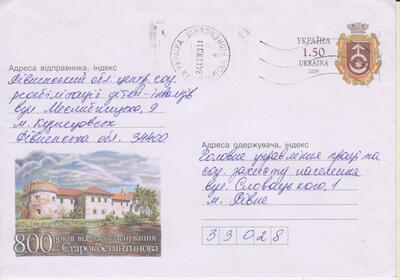 УКРАЇНА
1.50
UKRAINA
2009
Адреса відправника, індекс
Рівненський обл. центр соц.
реабілітації дітей-інвалідів
вул
м. Кузнецовськ
Рівненська обл. 34400
Адреса одержувача, індекс
Головне управління праці та
соц. захисту населення
вул. Словацького, 1
м. Рівне
33028
800 років від часу заснування
м. Старокостянтинова